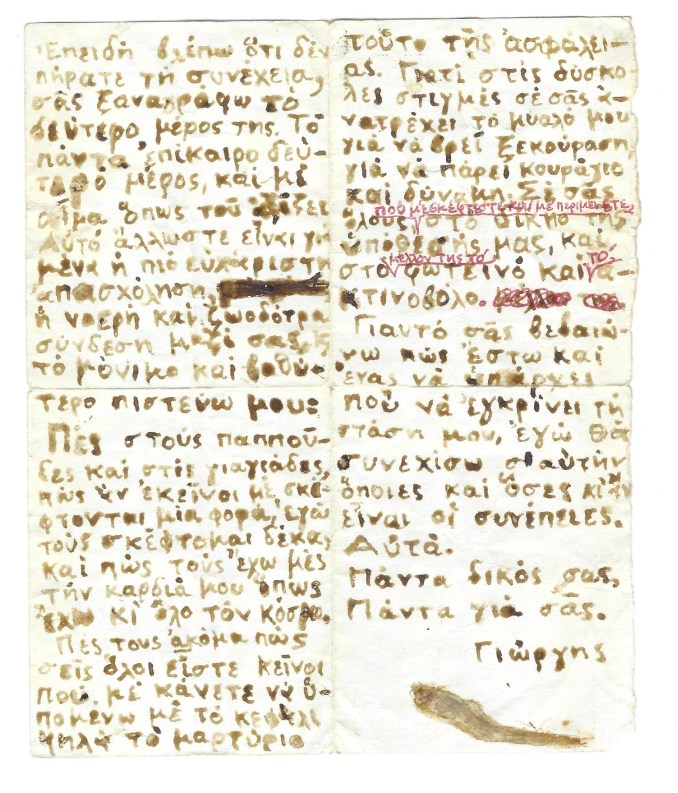 Ἐπειδή βλέπω ὅτι δέν
πήρατε τή συνέχεια,
σᾶς ξαναγράφω τό
δεύτερο μέρος της. Τό
πάντα ἐπίκαιρο δεύ-
τερο μέρος, καί μέ
αἷμα ὅπως τοῦ ἀξίζει
Αὐτό ἄλλωστε εἶναι γιά
μένα ἡ πιό εὐχάριστη
ἀπασχόληση,
ἡ νοερή καί ζωοδότρα
σύνδεση μαζί σας,
τό μόνιμο καί βαθύ-
τερο πιστεύω μου:
Πές στούς παππού-
δες καί στίς γιαγιάδες,
πώς ἄν ἐκεῖνοι μέ σκέ-
φτονται μία φορά, ἐγώ
τούς σκέφτομαι δέκα,
καί πώς τούς ἔχω μές
τήν καρδιά μου ὅπως
ἔχω κι ὅλο τόν κόσμο.
Πές τους ἀκόμα πώς
σεῖς ὅλοι εἶστε κεῖνοι
πού μέ κάνετε νά ὑ-
πομένω μέ τό κεφάλι
ψηλά τό μαρτύριο
τοῦτο τῆς ἀσφάλει-
ας. Γιατί στίς δύσκο-
λες στιγμές σέ σᾶς ἀ-
νατρέχει τό μυαλό μου
γιά νά βρεῖ ξεκούραση,
γιά νά πάρει κουράγιο
καί δύναμη. Σέ σᾶς
πού μέ σκέφτεστε καί μέ περιμένετε,
ὅλους στό δίκηο τῆς
ὑπόθεσής μας, καί
μέλλον της τό τό
στό φωτεινό καί ἀ-
κτινοβόλο.
Γιαυτό σᾶς βεβαιώ-
νω πώς ἔστω καί
ἕνας νά ὑπάρχει
πού νά ἐγκρίνει τή
στάση μου, ἐγώ θά
συνεχίσω σ' αὐτήν
ὅποιες καί ὅσες κι ἄν
εἶναι οἱ συνέπειες.
Αὐτά.
Πάντα δικός σας,
Πάντα γιά σᾶς.
Γιώργης